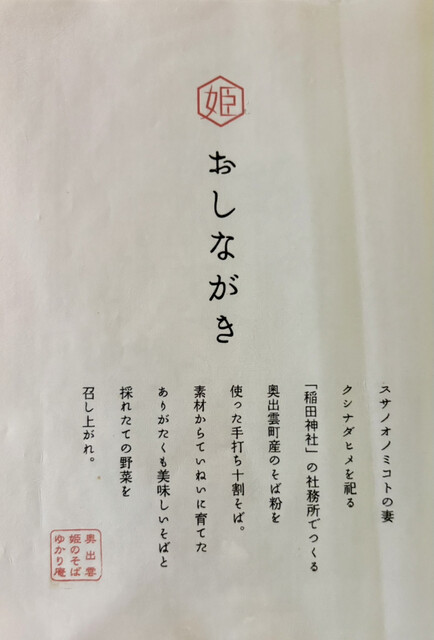 姫
おしながき
スサノオノミコトの妻
クシナダヒメを祀る
「稲田神社」の社務所でつくる
奥出雲町産のそば粉を
使った手打ち十割そば。
素材からていねいに育てた
ありがたくも美味しいそばと
採れたての野菜を
召し上がれ。
奥出雲
姫のそば
ゆかり庵